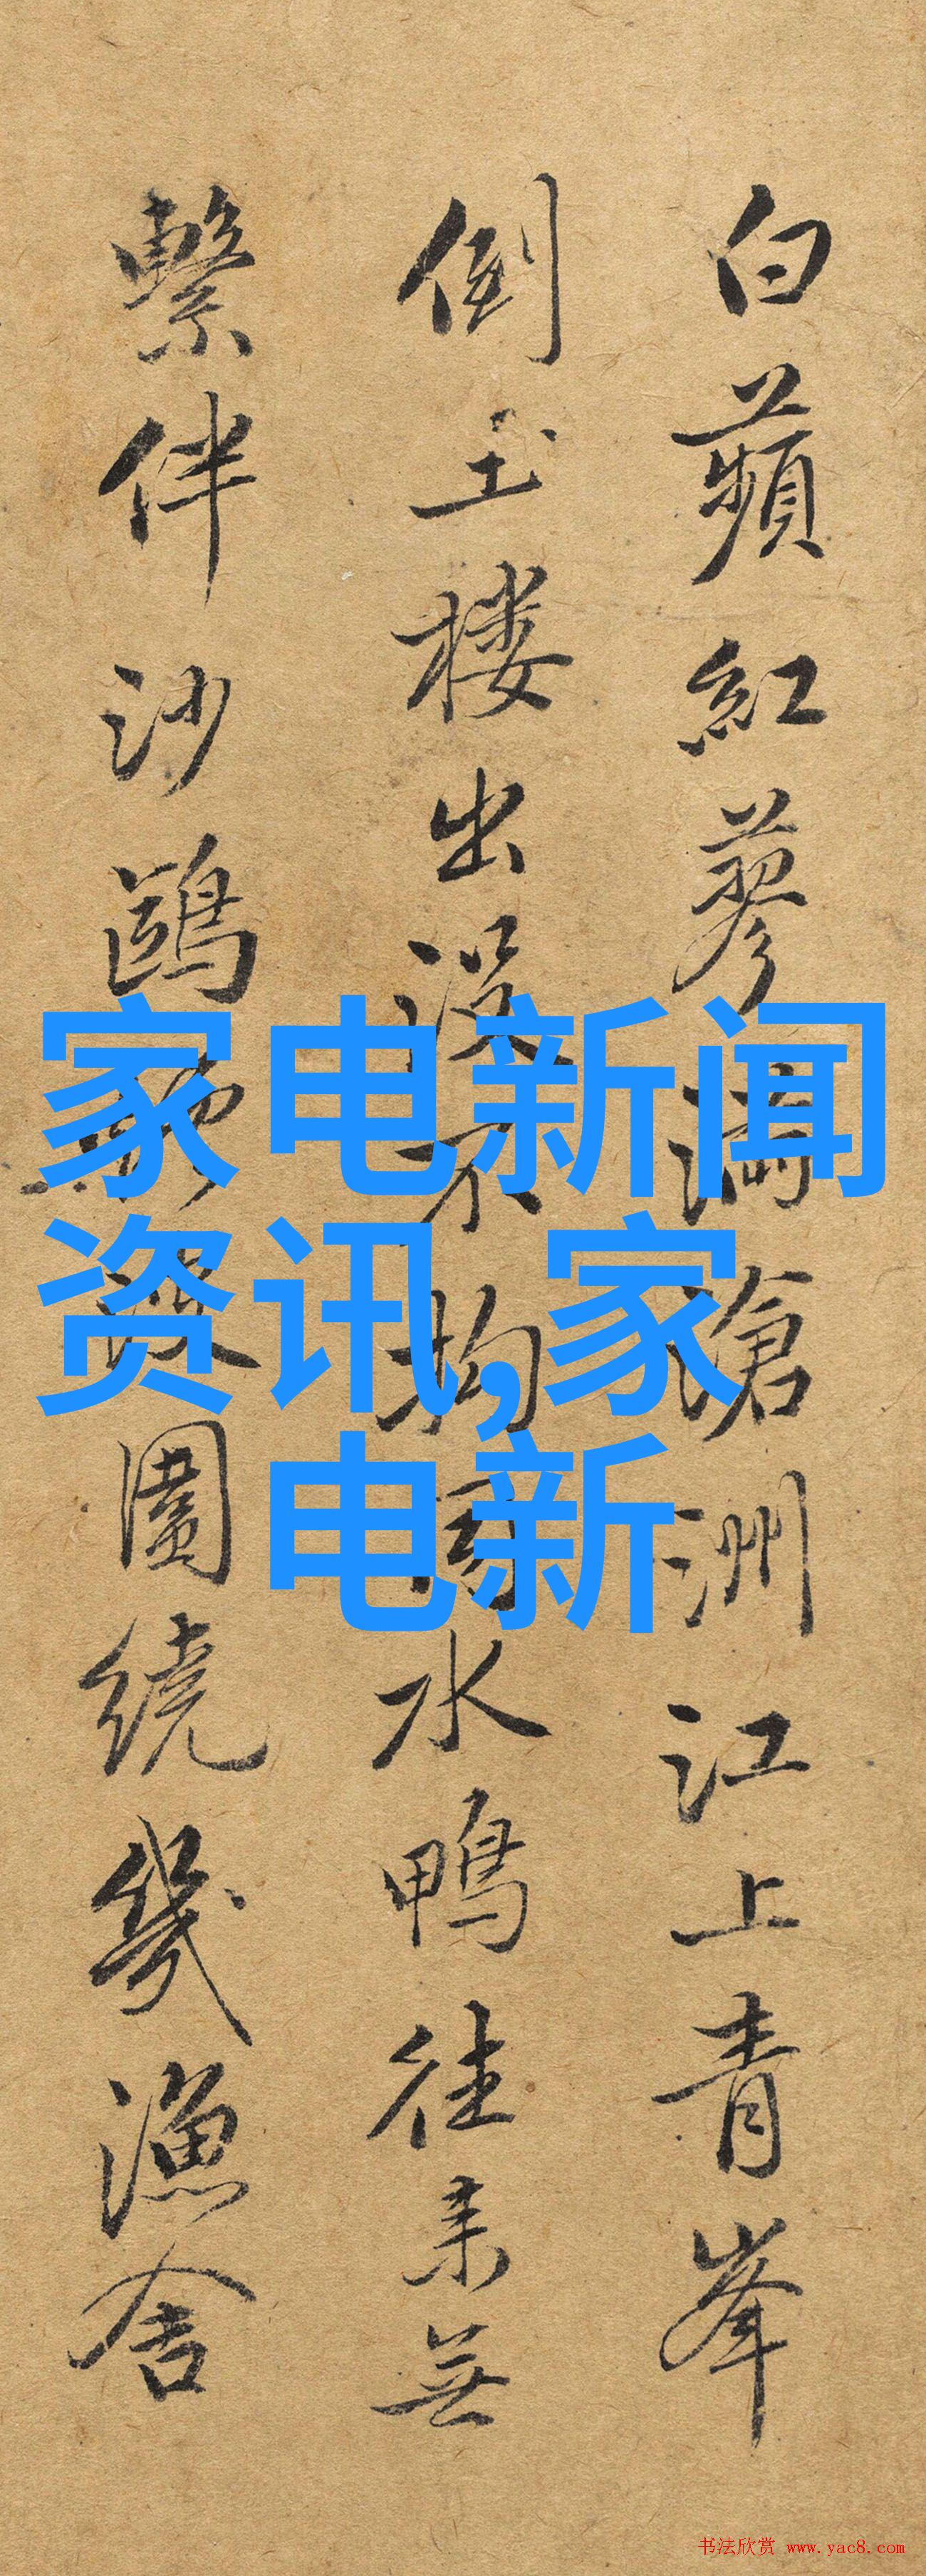 白蘋紅蓼滿滄洲江上青峯
倒玉楼出没不拘水鴨往来無
繫伴沙鷗圍繞幾漁舍
家电新闻
资讯,家
电新
书法欣赏 www.yac8.com